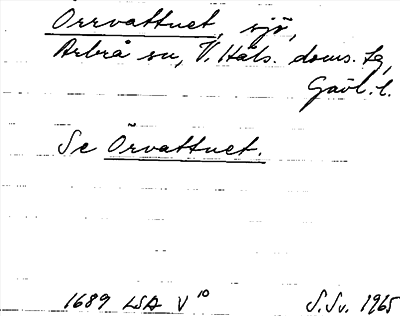 Orrvattnet, sjö,
Arbrå sn, V. Häls. doms. tg,
Gävl. l.
Se Örvattnet.
1689 LSA V 10 S.Sv. 1965